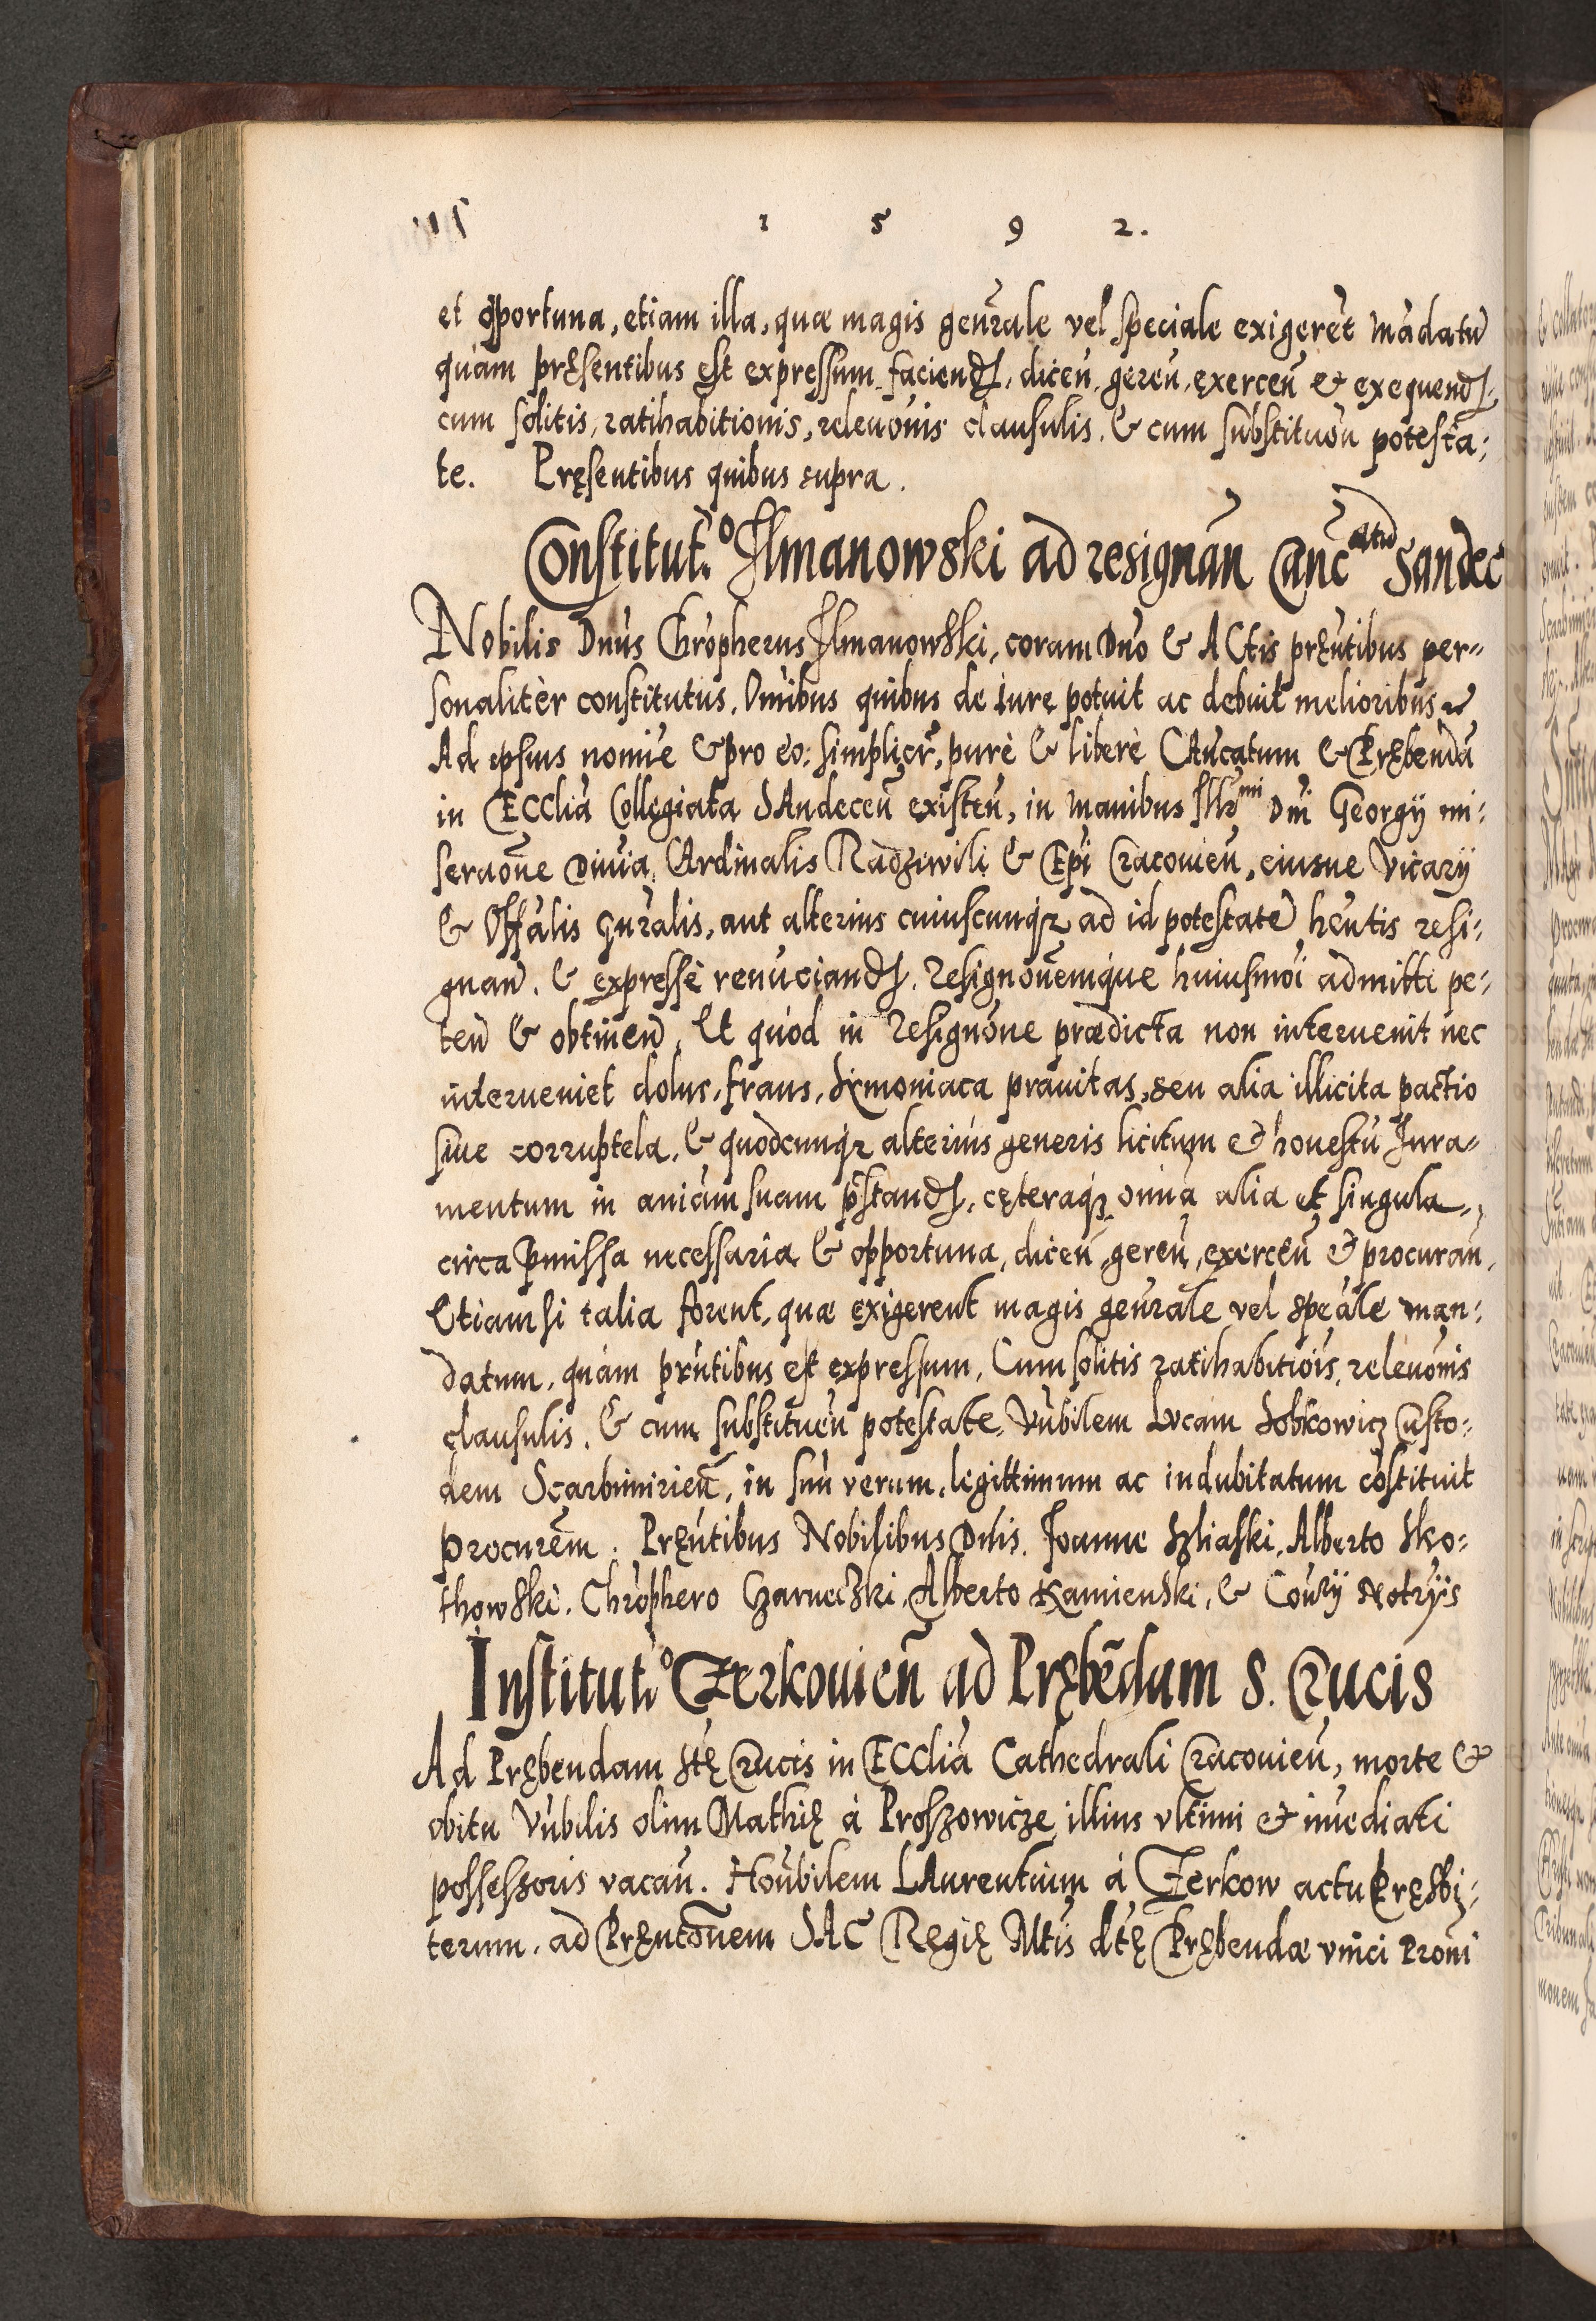 1 5 9 2.
et opportuna, etiam illa, quæ magis genrale vel speciale exigerēt mādatū
quàm pręsentibus est expressum faciend, dicen̄, geren̄, exercen̄ & exequend,
cum solitis, ratihabitionis, releuōnis clausulis, & cum substituōn potestā-
te. Pręsentibus quibus supra.
Constitut.º Ilmanowski ad resignān Canc̄atū Sandec̄
Nobilis Dnūs Chrōpherus Ilmanowski, coram Dnō & Actis pręn̄tibus per-
sonalitèr constitutus, Omn̄ibus quibus de iure potuit ac debuit melioribus
Ad ipsius nomīe & pro eo: simplicr̄, purè & liberè CAn̄catum & Prębendā
in ECCliā Collęgiata SAndecen̄ existen̄, in manibus Illr̄mi Dn̄i Georgÿ mi-
seraōne Diuīa Cardinalis Radziwili & Ep̄i Cracouien̄, eiusue Vicarÿ
& Offālis gnr̄alis, aut alterius cuiuscunqȝ ad id potestatē hen̄tis resi-
gnan̄. & expressè renūciand. Resignōnemque huiusmōi admitti pe-
ten̄ & obtinen̄, Et quòd in resignōne prædicta non interuenit nec
interueniet dolus, fraus, Symoniaca prauitas, seu alia illicita pactio
siue corruptela, & quodcunqȝ alterius generis licitum & honestū Iura-
mentum in anīam suam p̄stand, cęteraqȝ omn̄ia alia et singula,
circa p̄missa necessaria & opportuna, dicen̄, geren̄, exercen̄ & procuran̄,
Etiamsi talia forent, quæ exigerent magis genrāle vel speāle man-
datum, quàm prn̄tibus est expressum, Cum solitis ratihabitiōis, releuōnis
clausulis, & cum substituen̄ potestate, Vn̄bilem Lucam Sobkowicz Custo-
dem Scarbimirien̄, in suū verum, legittimum ac indubitatum cōstituit
procurēm. Pręn̄tibus Nobilibus Dn̄is. Joanne Szliaski, Alberto Sko-
thowski, Chrōphero Czarneczki, Alberto Kamienski, & Coūrÿ Notrÿs
Institut.º Zerkouien̄ ad Prębēdam S. Crucis
Ad Prębendam Stę Crucis in ECCliā Cathedrali Cracouien̄, morte &
obitu Vn̄bilis olim Mathię à Proszowicze illius vltimi & im̄ediati
possessoris vacan̄. Hon̄bilem LAurentium à Zerkow actu Pręsbi-
terum, ad Pręntōnem SAC̄ Regię Mtis dctę Prębendæ vnīci Pronī